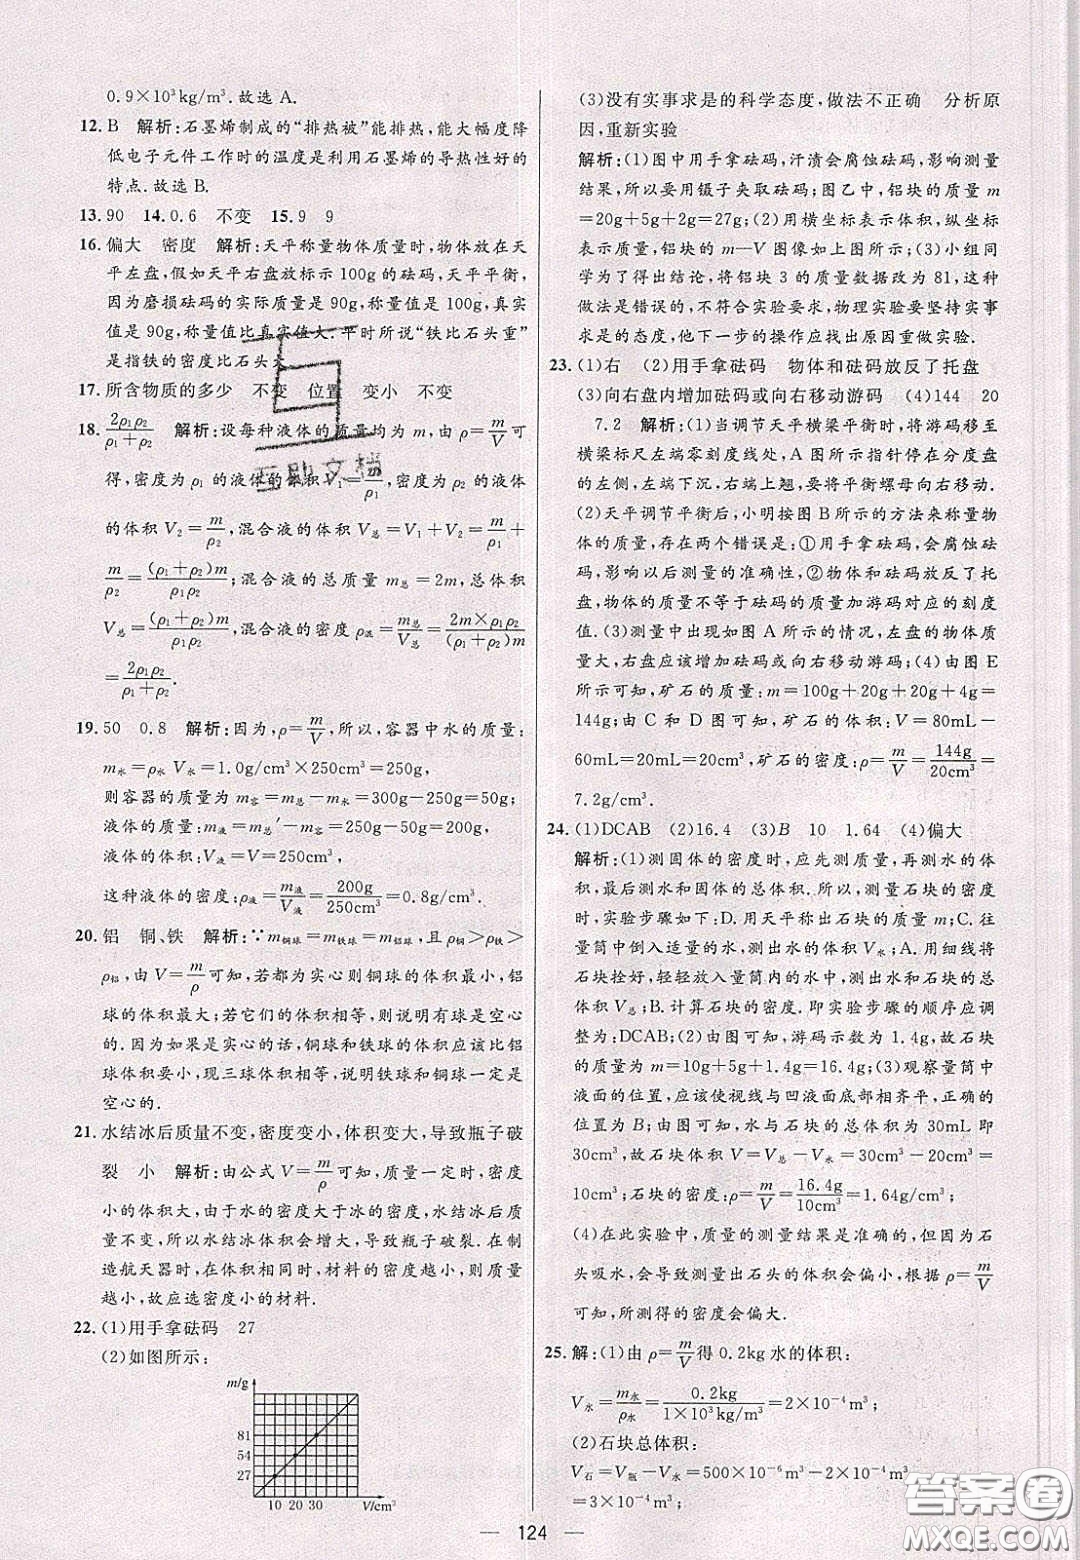 0.9×10³kg/m³.故选A.
12. B　解析:石墨烯制成的“排热被”能排热,能大幅度降
低电子元件工作时的温度是利用石墨烯的导热性好的
特点.故选B.
13. 90　14. 0.6　不变　15. 9　9
16. 偏大　密度　解析:天平称量物体质量时,物体放在天
平左盘,假如天平右盘放标示100g的砝码,天平平衡,
因为磨损砝码的实际质量是90g,称量值是100g,真实
值是90g,称量值比真实值大.平时所说“铁比石头重”
是指铁的密度比石头大.
17. 所含物质的多少　不变　位置　变小　不变
18. 2ρ₁ρ₂/(ρ₁+ρ₂)　解析:设每种液体的质量均为m,由ρ=m/V可
得,密度为ρ₁的液体的体积V₁=m/ρ₁,密度为ρ₂的液体
的体积V₂=m/ρ₂,混合液的体积V总=V₁+V₂=m/ρ₁+
m/ρ₂=(ρ₁+ρ₂)m/ρ₁ρ₂;混合液的总质量m总=2m,总体积
V总=(ρ₁+ρ₂)m/ρ₁ρ₂,混合液的密度ρ混=m总/V总=2m×ρ₁ρ₂/(ρ₁+ρ₂)m
=2ρ₁ρ₂/(ρ₁+ρ₂).
19. 50　0.8　解析:因为,ρ=m/V,所以,容器中水的质量:
m水=ρ水V水=1.0g/cm³×250cm³=250g,
则容器的质量为m容=m总-m水=300g-250g=50g;
液体的质量:m液=m总′-m容=250g-50g=200g,
液体的体积:V液=V水=250cm³,
这种液体的密度:ρ液=m液/V液=200g/250cm³=0.8g/cm³.
20. 铝　铜、铁　解析:∵m铜球=m铁球=m铝球,且ρ铜>ρ铁>
ρ铝,由V=m/ρ可知,若都为实心则铜球的体积最小,铝
球的体积最大;若它们的体积相等,则说明有球是空心
的.因为如果是实心的话,铜球和铁球的体积应该比铝
球体积要小,现三球体积相等,说明铁球和铜球一定是
空心的.
21. 水结冰后质量不变,密度变小,体积变大,导致瓶子破
裂　小　解析:由公式V=m/ρ可知,质量一定时,密度
小的体积大,由于水的密度大于冰的密度,水结冰后质
量不变,所以水结冰体积会增大,导致瓶子破裂.在制
造航天器时,在体积相同时,材料的密度越小,则质量
越小,故应选密度小的材料.
22. (1)用手拿砝码　27
(2)如图所示:
m/g
81
54
27
10 20 30 V/cm³
(3)没有实事求是的科学态度,做法不正确　分析原
因,重新实验
解析:(1)图中用手拿砝码,汗渍会腐蚀砝码,影响测量
结果,所以要用镊子夹取砝码;图乙中,铝块的质量m
=20g+5g+2g=27g;(2)用横坐标表示体积,纵坐标
表示质量,铝块的m—V图像如上图所示;(3)小组同
学为了得出结论,将铝块3的质量数据改为81,这种
做法是错误的,不符合实验要求,物理实验要坚持实事
求是的态度,他下一步的操作应找出原因重做实验.
23. (1)右　(2)用手拿砝码　物体和砝码放反了托盘
(3)向右盘内增加砝码或向右移动游码　(4)144　20
7.2　解析:(1)当调节天平横梁平衡时,将游码移至
横梁标尺左端零刻度线处,A图所示的指针在分度盘
的左侧,左端下沉,右端上翘,要将平衡螺母向右移动.
(2)天平调节平衡后,小明按图B所示的方法来称量物
体的质量,存在两个错误是:①用手拿砝码,会腐蚀砝
码,影响以后测量的准确性,②物体和砝码放反了托
盘,物体的质量不等于砝码的质量加游码对应的刻度
值.(3)测量中出现如图A所示的情况,左盘的物体质
量大,右盘应该增加砝码或向右移动游码;(4)由图E
所示可知,矿石的质量m=100g+20g+20g+4g=
144g;由C和D图可知,矿石的体积:V=80mL-
60mL=20mL=20cm³,矿石的密度:ρ=m/V=144g/20cm³=
7.2g/cm³.
24. (1)DCAB　(2)16.4　(3)B　10　1.64　(4)偏大
解析:(1)测固体的密度时,应先测质量,再测水的体
积,最后测水和固体的总体积.所以,测量石块的密度
时,实验步骤如下:D.用天平称出石块的质量m;C.往
量筒中倒入适量的水,测出水的体积V水;A.用细线将
石块拴好,轻轻放入量筒内的水中,测出水和石块的总
体积V总;B.计算石块的密度.即实验步骤的顺序应调
整为:DCAB;(2)由图可知,游码示数为1.4g,故石块
的质量为m=10g+5g+1.4g=16.4g;(3)观察量筒中
液面的位置,应该使视线与凹液面底部相齐平,正确的
位置为B;由图可知,水与石块的总体积为30mL即
30cm³,故石块体积V=V总-V水=30cm³-20cm³=
10cm³;石块的密度:ρ=m/V=16.4g/10cm³=1.64g/cm³;
(4)在此实验中,质量的测量结果是准确的,但是因石
头吸水,会导致测量出石头的体积会偏小,根据ρ=m/V
可知,所测得的密度会偏大.
25. 解:(1)由ρ=m/V得0.2kg水的体积:
V水=m水/ρ水=0.2kg/1×10³kg/m³=2×10⁻⁴m³;
(2)石块总体积:
V石=V瓶-V水=500×10⁻⁶m³-2×10⁻⁴m³
=3×10⁻⁴m³;
124
答案圈
MXQE.COM